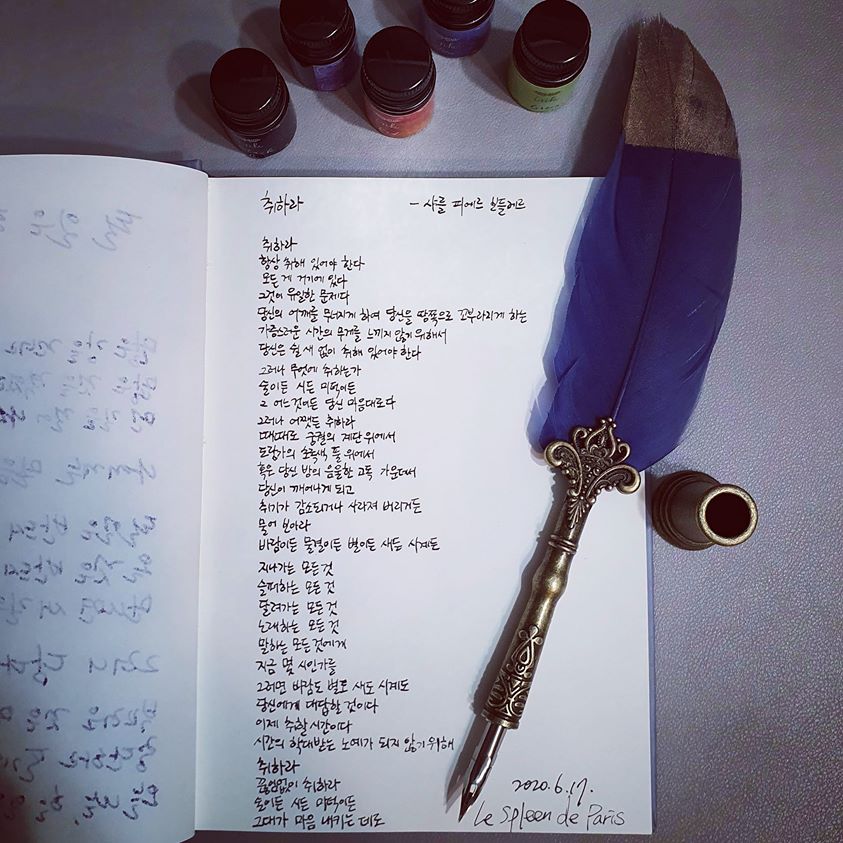 취하라 - 샤를 피에르 보들레르
취하라
항상 취해 있어야 한다
모든 게 거기에 있다
그것이 유일한 문제다
당신의 어깨를 무너지게 하여 당신을 땅쪽으로 꼬부라지게 하는
가증스러운 시간의 무게를 느끼지 않기 위해서
당신은 쉴 새 없이 취해 있어야 한다
그러나 무엇에 취하는가
술이든 시든 미덕이든
그 어느것이든 당신 마음대로다
그러나 어쨌든 취하라
때때로 궁궐의 계단 위에서
도랑가의 초록색 풀 위에서
혹은 당신 방의 음울한 고독 가운데서
당신이 깨어나게 되고
취기가 감소되거나 사라져 버리거든
물어 보아라
바람이든 물결이든 별이든 새든 시계든
지나가는 모든 것
슬퍼하는 모든 것
달려가는 모든 것
노래하는 모든 것
말하는 모든것에게
지금 몇 시인가를
그러면 바람도 별도 새도 시계도
당신에게 대답할 것이다
이제 취할 시간이다
시간의 학대받는 노예가 되지 않기 위해
취하라
끊임없이 취하라
술이든 시든 미덕이든
그대가 마음 내키는 데로
2020.6.17.
Le Spleen de Paris